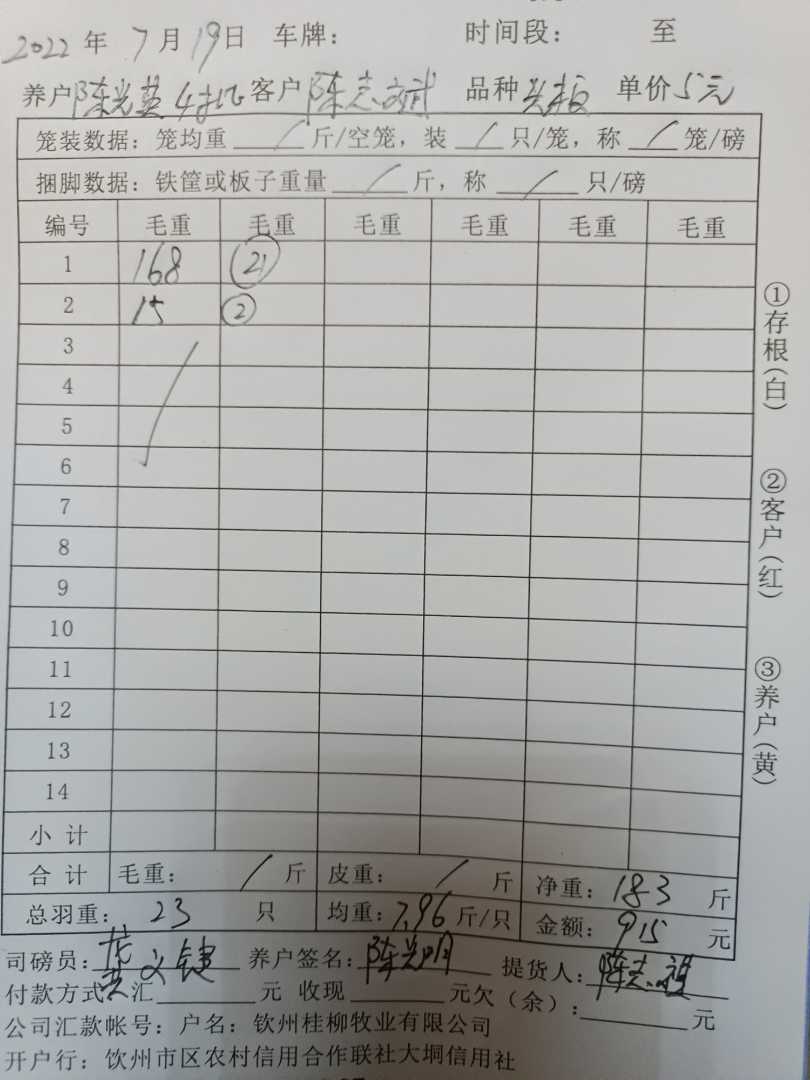 2022 年 7 月 19 日 车牌： 时间段： 至
养户 陈光英 客户 陈志斌 品种 单价 5元
笼装数据：笼均重 / 斤/空笼，装 / 只/笼，称 / 笼/磅
捆脚数据：铁筐或板子重量 / 斤，称 / 只/磅
编号 毛重 毛重 毛重 毛重 毛重 毛重
1 168 (21)
2 15 (2)
3
4
5
6
7
8
9
10
11
12
13
14
小 计
合 计 毛重： / 斤 皮重： / 斤 净重：183 斤
总羽重：23 只 均重：7.96 斤/只 金额：915 元
司磅员： 养户签名：陈光明 提货人：陈志
付款方式 汇 元 收现 元欠（余）： 元
公司汇款帐号：户名：钦州桂柳牧业有限公司
开户行：饮州市区农村信用合作联社大垌信用社
①存根（白）
②客户（红）
③养户（黄）